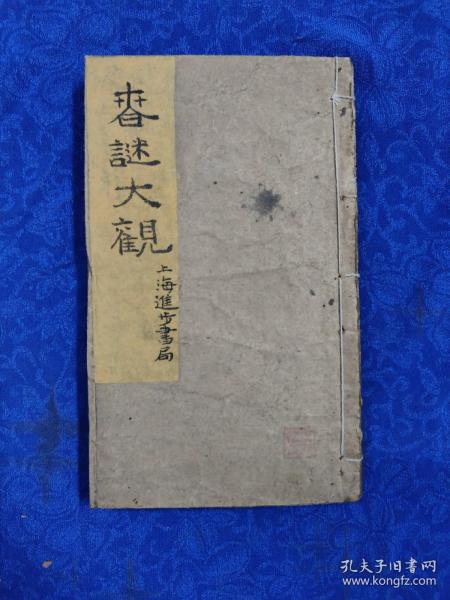 春謎大觀
上海進步書局
孔夫子旧书网
www.kongfz.com